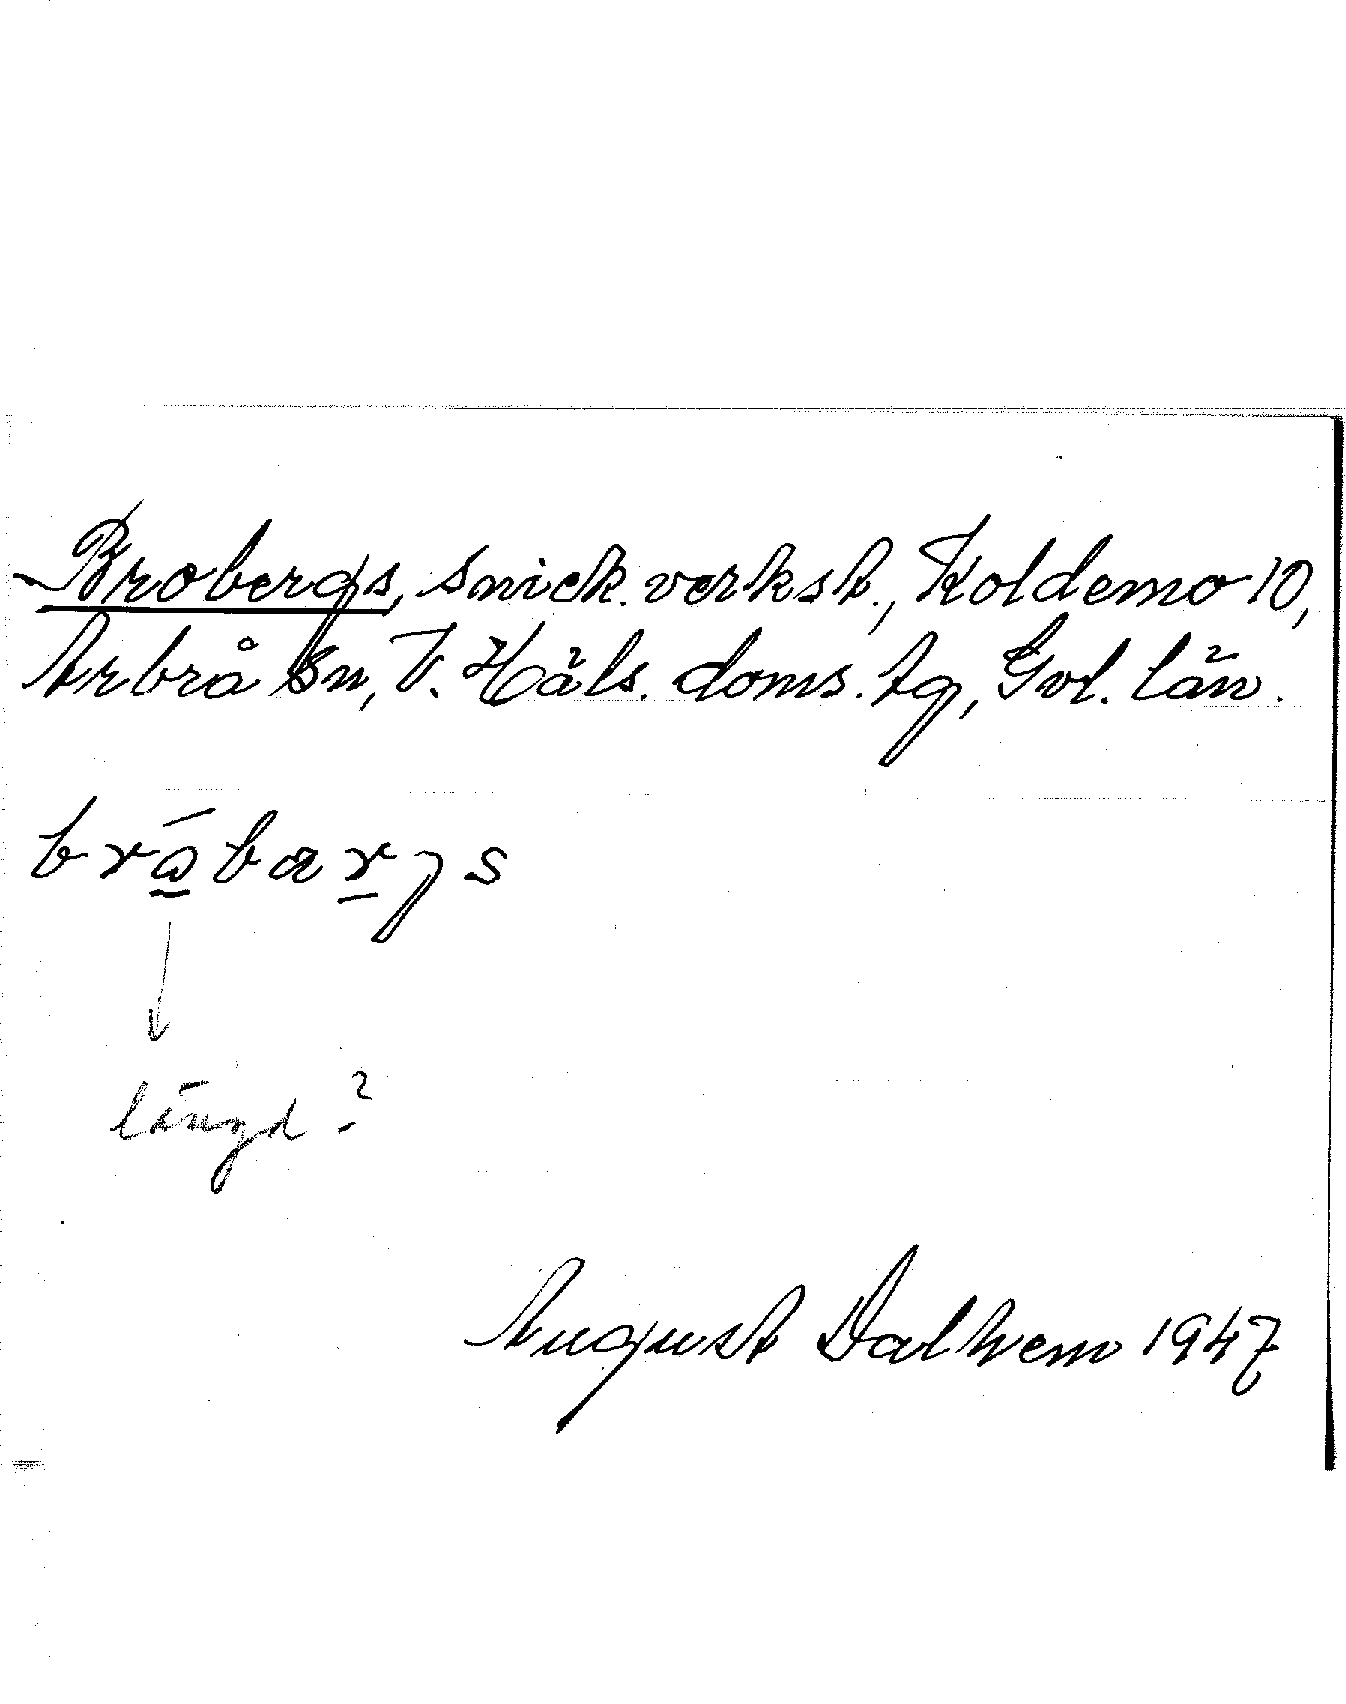 Brobergs, snick. verkst., Koldemo 10,
Arbrå sn, V. Häls. doms. tg, Gvl. län.
bråbærȷs
längd?
August Dalhem 1947